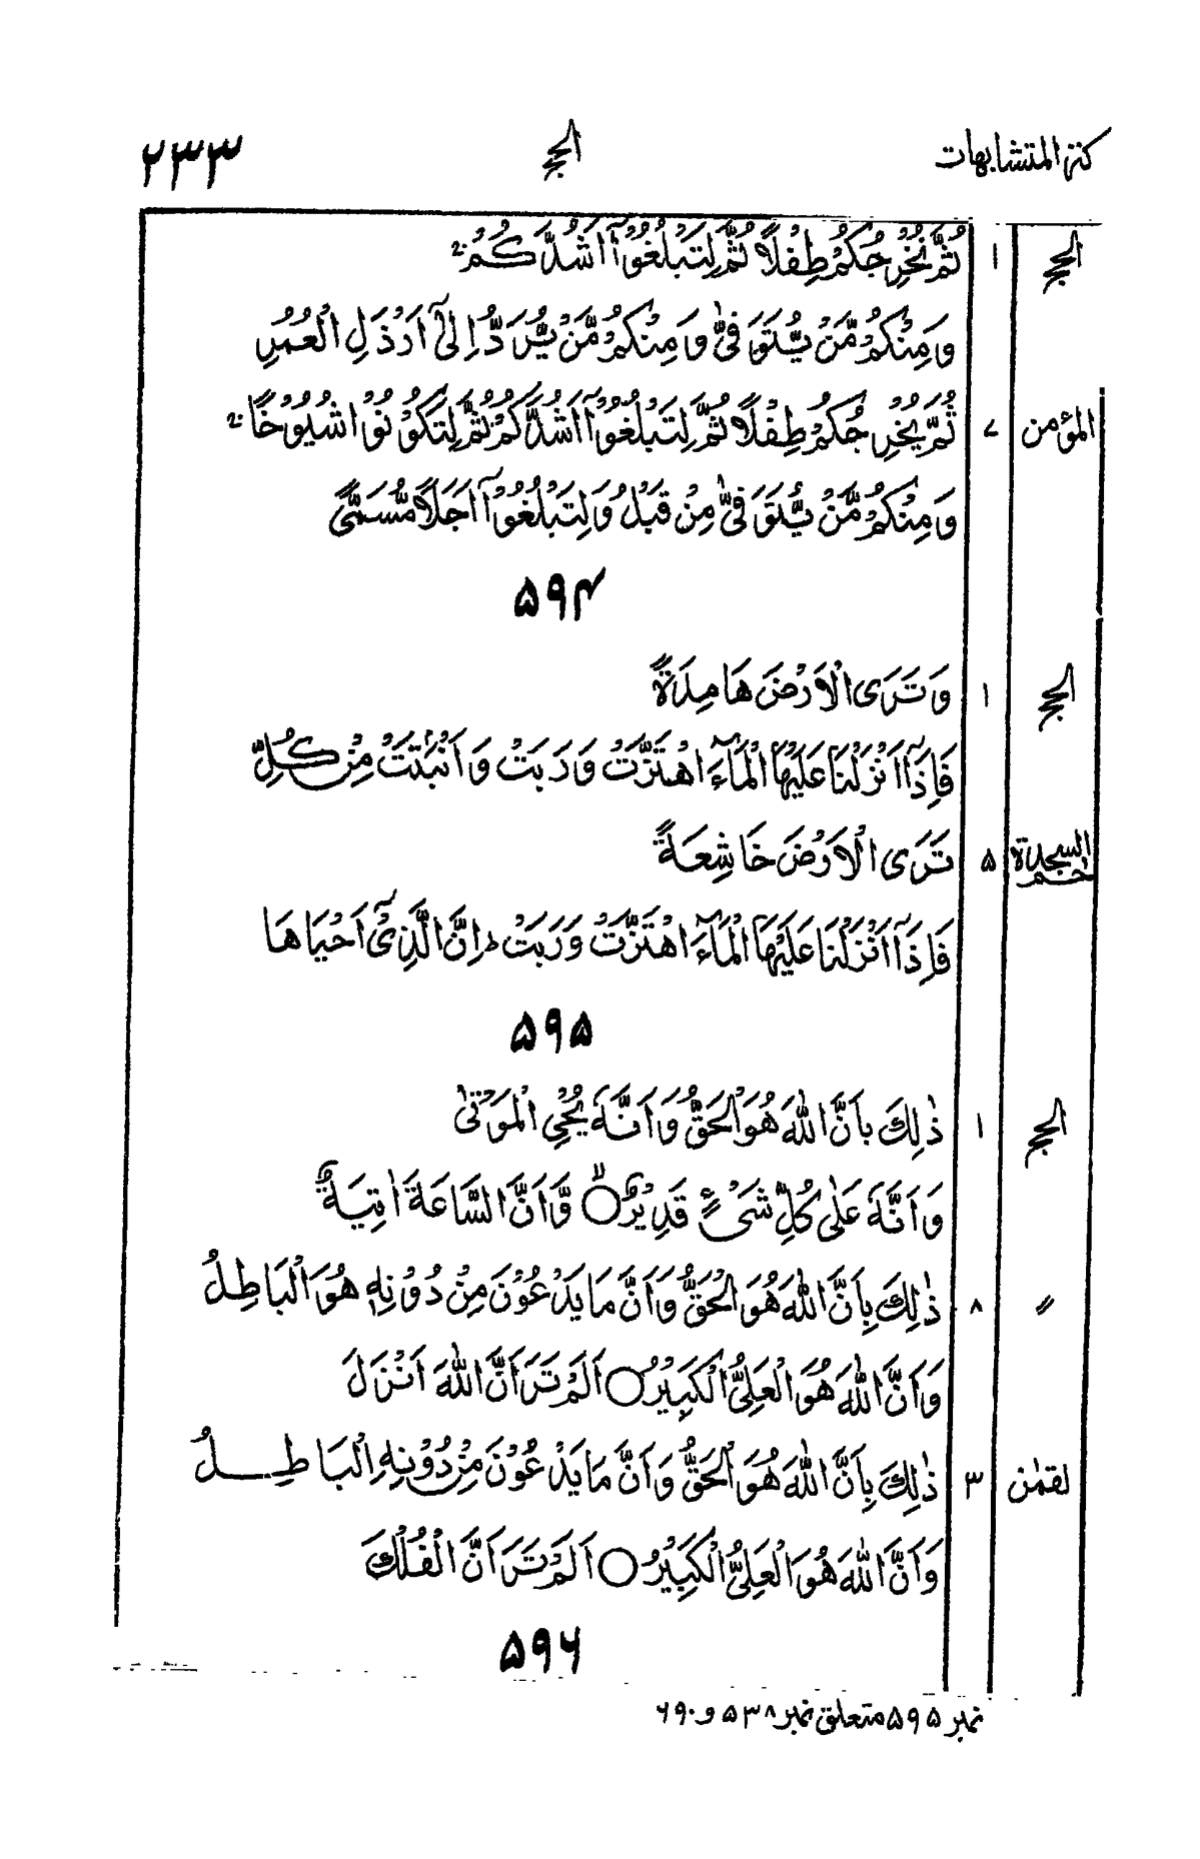 كنز المتشابهات الحج ۲۳۳
الحج ۱ ثُمَّ نُخْرِجُكُمْ طِفْلًا ثُمَّ لِتَبْلُغُوْٓا اَشُدَّكُمْ ۚ
وَمِنْكُمْ مَّنْ يُّتَوَفّٰى وَمِنْكُمْ مَّنْ يُّرَدُّ اِلٰٓى اَرْذَلِ الْعُمُرِ
المؤمن ۷ ثُمَّ يُخْرِجُكُمْ طِفْلًا ثُمَّ لِتَبْلُغُوْٓا اَشُدَّكُمْ ثُمَّ لِتَكُوْنُوْا شُيُوْخًا ۚ
وَمِنْكُمْ مَّنْ يُّتَوَفّٰى مِنْ قَبْلُ وَلِتَبْلُغُوْٓا اَجَلًا مُّسَمًّى
۵۹۴
الحج ۱ وَتَرَى الْاَرْضَ هَامِدَةً
فَاِذَآ اَنْزَلْنَا عَلَيْهَا الْمَآءَ اهْتَزَّتْ وَرَبَتْ وَاَنْبَتَتْ مِنْ كُلِّ
حٰم السجدة ۵ تَرَى الْاَرْضَ خَاشِعَةً
فَاِذَآ اَنْزَلْنَا عَلَيْهَا الْمَآءَ اهْتَزَّتْ وَرَبَتْ ؕ اِنَّ الَّذِىْٓ اَحْيَاهَا
۵۹۵
الحج ۱ ذٰلِكَ بِاَنَّ اللّٰهَ هُوَ الْحَقُّ وَاَنَّهٗ يُحْىِ الْمَوْتٰى
وَاَنَّهٗ عَلٰى كُلِّ شَىْءٍ قَدِيْرٌ ۙ وَّاَنَّ السَّاعَةَ اٰتِيَةٌ
〃 ۸ ذٰلِكَ بِاَنَّ اللّٰهَ هُوَ الْحَقُّ وَاَنَّ مَا يَدْعُوْنَ مِنْ دُوْنِهٖ هُوَ الْبَاطِلُ
وَاَنَّ اللّٰهَ هُوَ الْعَلِىُّ الْكَبِيْرُ ○ اَلَمْ تَرَ اَنَّ اللّٰهَ اَنْزَلَ
لقمٰن ۳ ذٰلِكَ بِاَنَّ اللّٰهَ هُوَ الْحَقُّ وَاَنَّ مَا يَدْعُوْنَ مِنْ دُوْنِهِ الْبَاطِلُ
وَاَنَّ اللّٰهَ هُوَ الْعَلِىُّ الْكَبِيْرُ ○ اَلَمْ تَرَ اَنَّ الْفُلْكَ
۵۹۶
نمبر ۵۹۵ متعلق نمبر ۵۳۸ و ۶۹۰